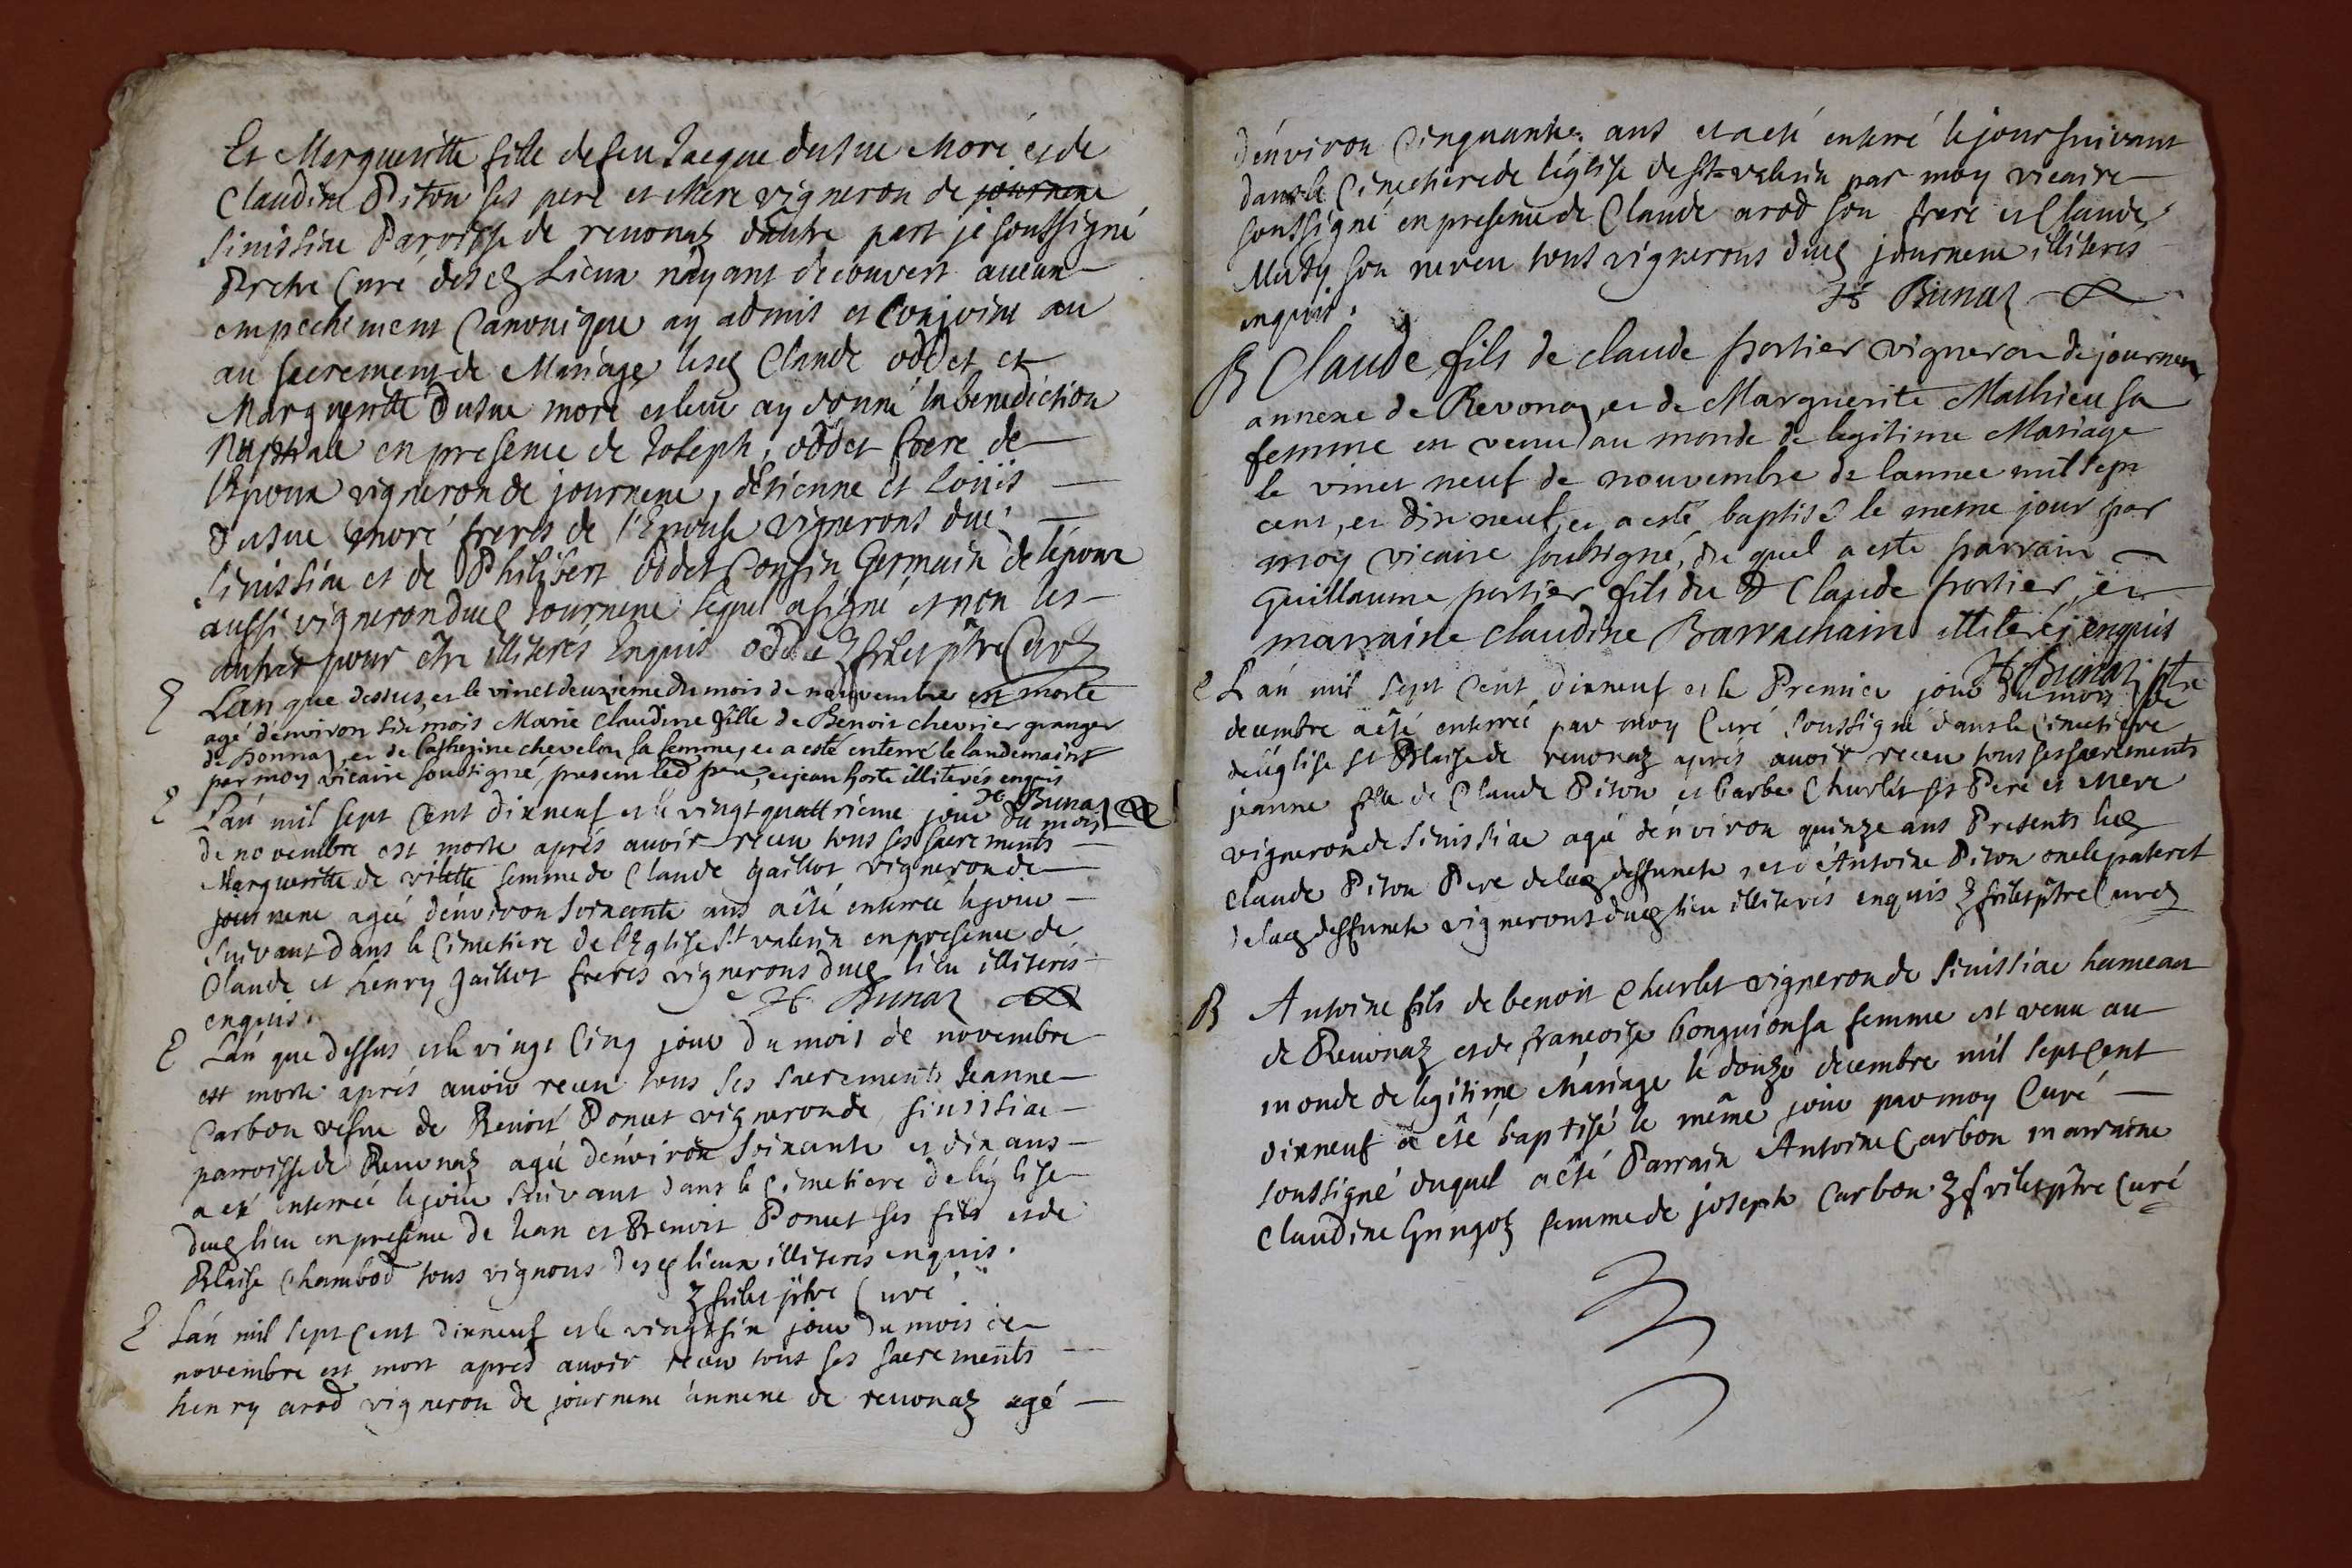 Et Margueritte fille de feu Jacque dusue Moré et de
Claudine Piton ses pere et Mere vigneron de journene
Sinissiae Paroisse de reuonaz dautre part je soussigné
Pretre Curé desd Lieux n'ayant decouvert aucun
empechement Canonique ay admis et Conjoint au
au sacrement de Mariage lesd Claude oddet et
Margueritte dusue moré et leur ay donné la benediction
Nuptiale en presence de Joseph, oddet frere de
l'Epoux vigneron de journene, d'etienne et Loüis
dusue moré freres de l'Epouse vignerons dud
Sinissiae et de Philibert oddet Cousin Germain de lépoux
aussi vigneron dud Journene lequel a signé et non les
autres pour etre illiterés Enquis oddet ptre Curé
E Lan que dessus, et le vinet deuzieme du mois de nouvembre est morte
agé d'environ six mois Marie Claudine fille de Benoit chevrier granger
de Donnaz, et de Catherine chevelon sa femme, et a esté enterré le landemains
par moy vicaire soubsigné, present led pere, et jean horte illiterés enquis
H. Bunaz
E L'an mil sept Cent dixneuf et le vingt quattrieme jour du mois
de novembre est morte aprés auoir receu tous ses sacrements
Margueritte de vilette femme de Claude gaillot vigneron de
journene ageé d'environ soixante ans a été enterreé le jour
suivant dans le Cimetiere de l'Eglise St valerin en presence de
Claude et henry gaillot freres vignerons dud lieu illiterés
enquis. H. Bunaz
E L'an que dessus et le vingt Cinq jour du mois de novembre
est morte aprés auoir receu tous ses sacrements Jeanne
Carbon vefue de Benoit Poncet vigneron de sinissiae
parroisse de Reuonaz ageé d'environ soixante et dix ans
a eté enterreé le jour suivant dans le Cimetiere de léglise
dud lieu en presence de Jean et Benoit Poncet ses fils et de
Blaise Chambod tous vignons desd lieux illiterés enquis.
ptre Curé
E L'an mil sept Cent dixneuf et le vingt six jour du mois de
novembre est mort apres auoir receu tous ses sacrements
henry arod vigneron de journene annexe de reuonaz agé
d'environ Cinquante ans et a eté enterré le jour suivant
dans le Cimetiere de l'église de St valerin par moy vicaire
soussigné en presence de Claude arod son frere et Claude
Maty son neveu tous vignerons dud journene illiterés
enquis. H. Bunaz
B Claude fils de claude portier vigneron de journen
annexe de Revonaz, et de Marguerite Mathieu sa
femme est venu au monde de legitime Mariage
le vinet neuf de nouvembre de lannee mil sept
cent, et dix neuf, et a esté baptisé le mesme jour par
moy vicaire soubsigné, du quel a este parrain
Guillaume portier fils du d Claude portier, et
marraine claudine Barrachain illiteréz enquis
H. Bunaz ptre
E L'an mil sept Cent dixneuf et le Premier jour du mois de
decembre a été enterreé par moy Curé soussigné dans le Cimetiere
de l'église St Blaise de reuonaz aprés auoir receu tous ses sacrements
jeanne fille de Claude Piton et barbe Churlet ses Pere et Mere
vigneron de Sinissiae ageé d'environ quinze ans Presents led
Claude Piton Pere de lad deffuncte et d'Antoine Piton oncle paternel
de lad deffuncte vignerons dud lieu illiterés enquis ptre Curé
B Antoine fils de benoit Churlet vigneron de Sinissiae hameau
de Reuonaz et de francoise bonguion sa femme est venu au
monde de legitime Mariage le douze decembre mil sept Cent
dixneuf a été baptisé le même jour par moy Curé
soussigné duquel a été Parrain Antoine Carbon marraine
Claudine Gringoz femme de joseph Carbon ptre Curé